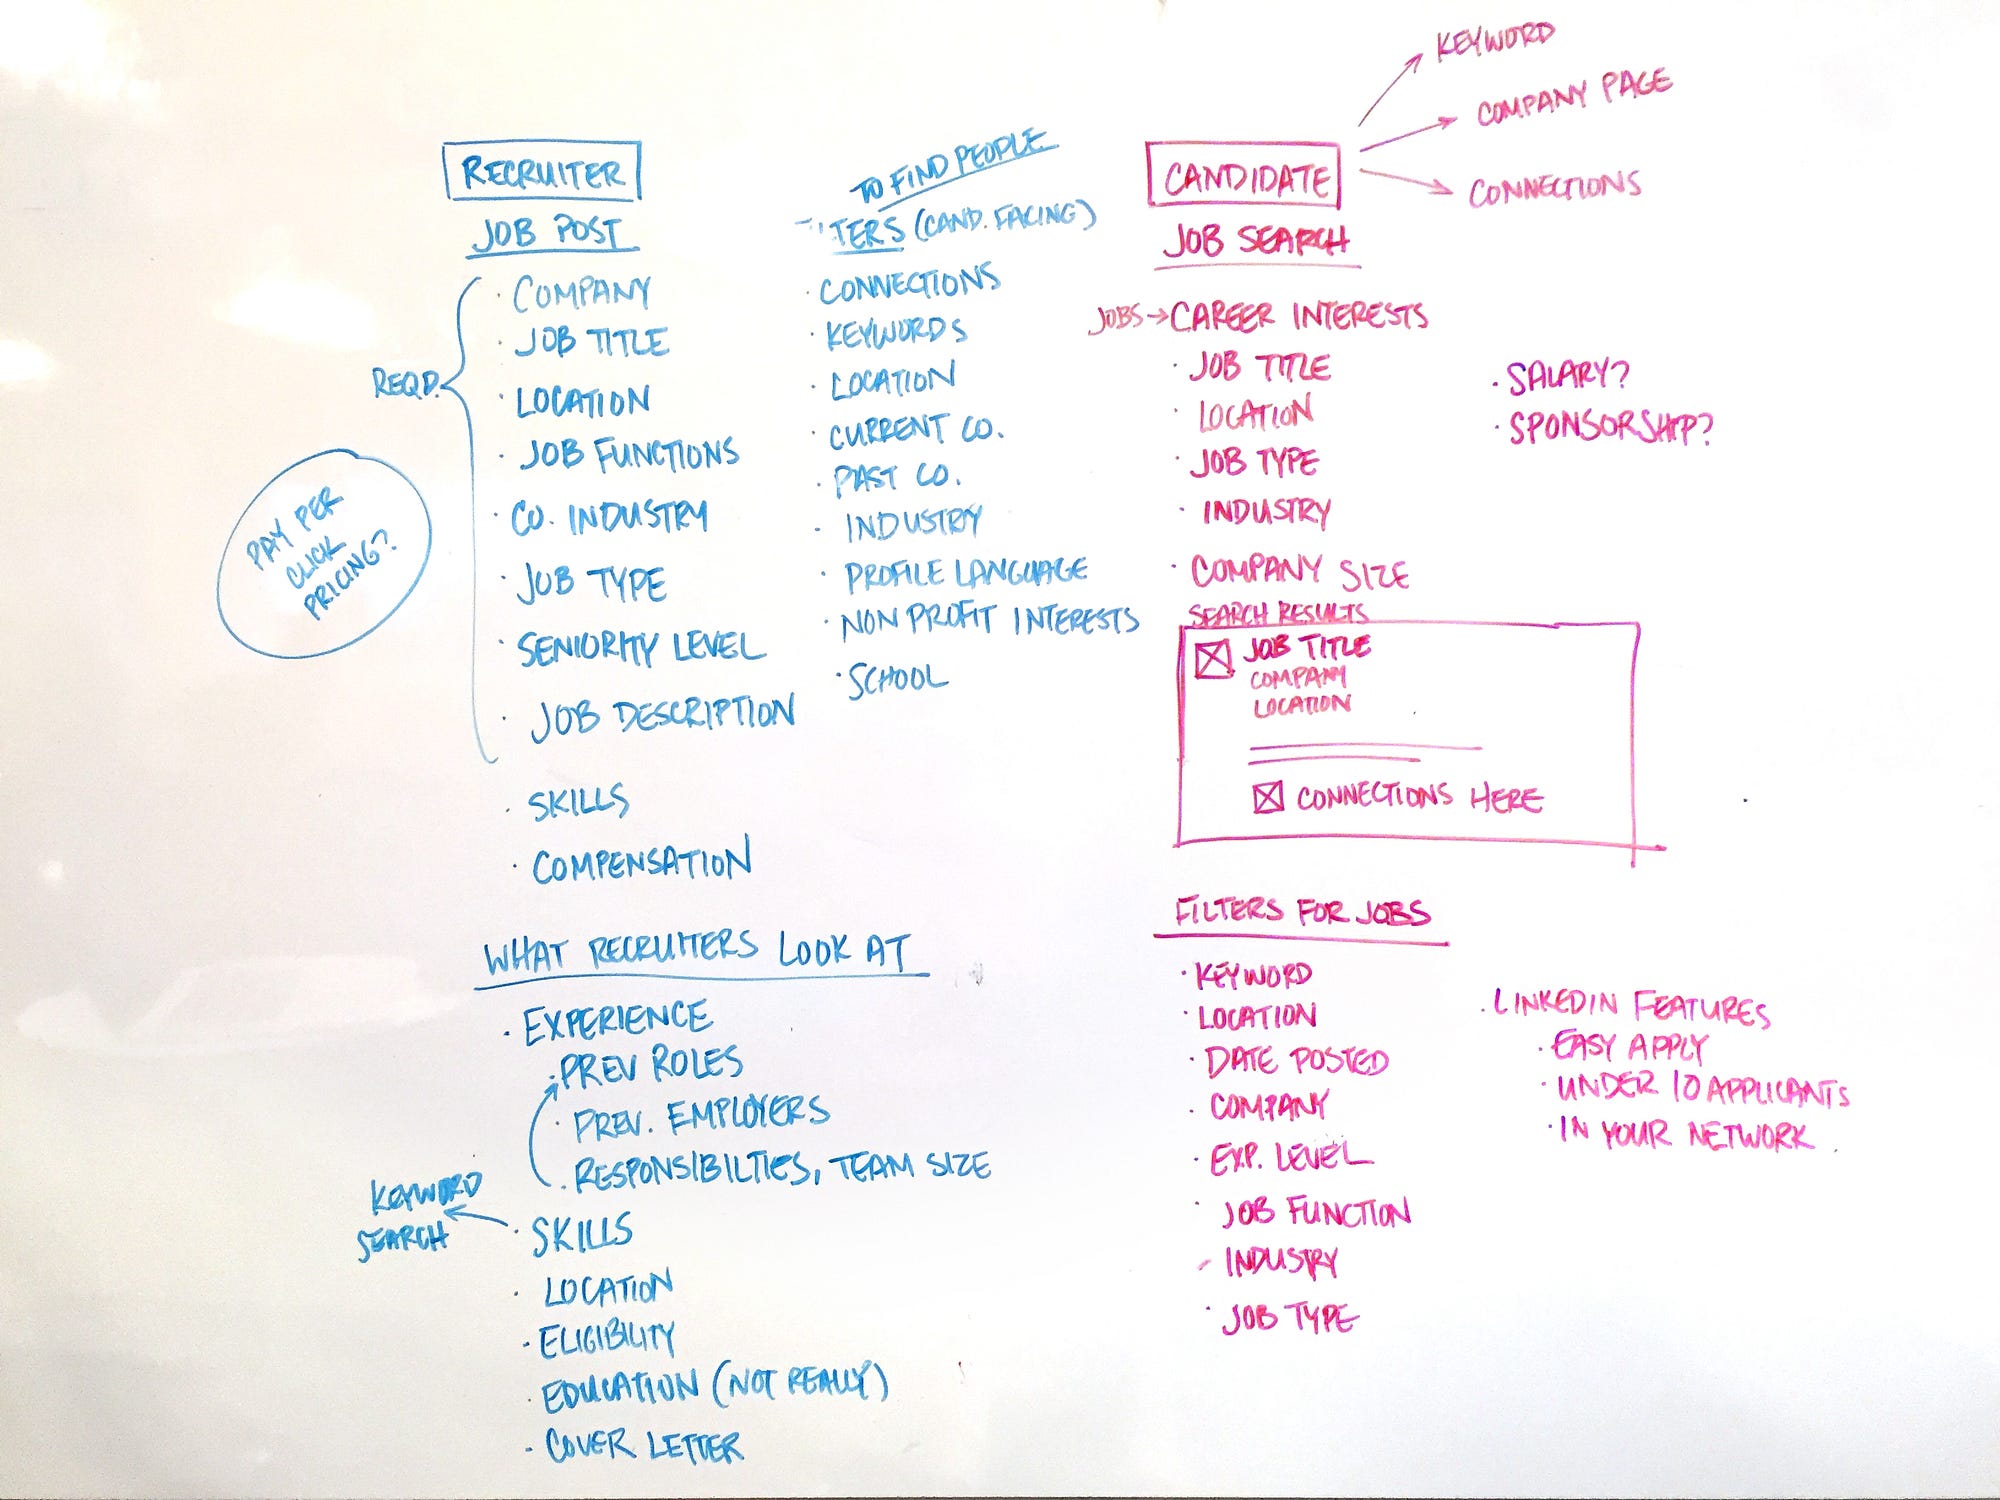 RECRUITER
JOB POST
REQD.
· COMPANY
· JOB TITLE
· LOCATION
· JOB FUNCTIONS
· CO. INDUSTRY
· JOB TYPE
· SENIORITY LEVEL
· JOB DESCRIPTION
· SKILLS
· COMPENSATION
PAY PER
CLICK
PRICING?
WHAT RECRUITERS LOOK AT
· EXPERIENCE
· PREV ROLES
· PREV. EMPLOYERS
· RESPONSIBILTIES, TEAM SIZE
· SKILLS
KEYWORD
SEARCH
· LOCATION
· ELIGIBILITY
· EDUCATION (NOT REALLY)
- COVER LETTER
TO FIND PEOPLE
(CAND. FACING)
· CONNECTIONS
· KEYWORDS
· LOCATION
· CURRENT CO.
· PAST CO.
· INDUSTRY
· PROFILE LANGUAGE
· NON PROFIT INTERESTS
· SCHOOL
CANDIDATE
KEYWORD
COMPANY PAGE
CONNECTIONS
JOB SEARCH
JOBS → CAREER INTERESTS
· JOB TITLE
· LOCATION
· JOB TYPE
· INDUSTRY
· COMPANY SIZE
· SALARY?
· SPONSORSHIP?
SEARCH RESULTS
JOB TITLE
COMPANY
LOCATION
CONNECTIONS HERE
FILTERS FOR JOBS
· KEYWORD
· LOCATION
· DATE POSTED
· COMPANY
· EXP. LEVEL
· JOB FUNCTION
· INDUSTRY
· JOB TYPE
· LINKEDIN FEATURES
· EASY APPLY
· UNDER 10 APPLICANTS
· IN YOUR NETWORK